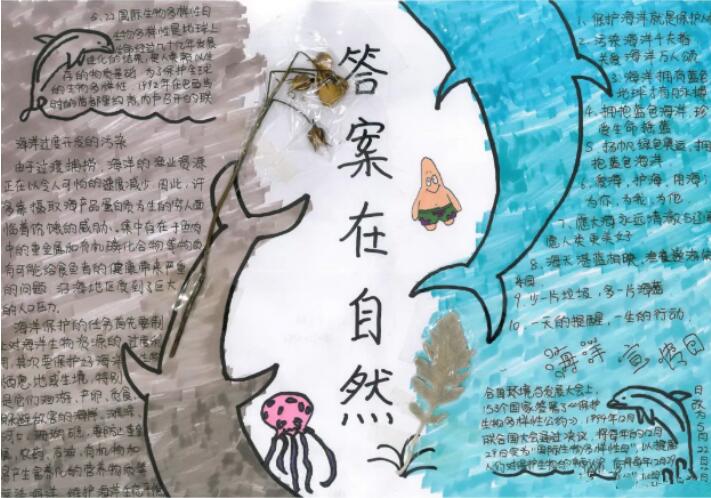 5.22国际生物多样性日
生物多样性是地球上
生命经过几十亿年发展
进化的结果,是人类赖以生
存的物质基础 为了保护全球
的生物多样性,1992年在巴西当
时的首都里约热内卢召开的联
海洋过度开发的污染
由于过渡捕捞,海洋的渔业资源
正在以令人可怕的速度减少 因此,许
多靠摄取海产品蛋白质为生的穷人面
临着饥饿的威胁,集中存在于鱼肉
中的重金属和有机磷化合物等物质
有可能给食鱼者的健康带来严重
的问题 沿海地区受到了巨大
的人口压力.
海洋保护的任务首先要制
止对海洋生物资源的过度利
用,其次要保护好海洋生物
栖息地或生境,特别
是它们洄游、产卵、觅食、
躲避敌害的海岸、滩涂、
河口、珊瑚礁,要防止重金
属、农药、石油、有机物和
易产生富营养化的营养物质等
答案在自然
1、保护海洋就是保护人
2、污染海洋千夫指
关爱海洋万人颂
3、海洋拥有蓝色
地球才有脉搏
4、拥抱蓝色海洋,珍
爱生命摇篮
5、扬帆绿色奥运,拥
抱蓝色海洋
6、爱海,护海,用海
为你,为我,为他.
7、愿大海永远清澈
愿人类更美好
8、海天湛蓝相映
9、少一片垃圾,多一片海蓝
10、一天的提醒,一生的行动.
海洋宣传日
合国环境与发展大会上,
153个国家签署了《保护
生物多样性公约》,1994年12月
联合国大会通过决议,将每年的12月
29定为“国际生物多样性日”,以提高
人们对保护生物的
日改为5月22日